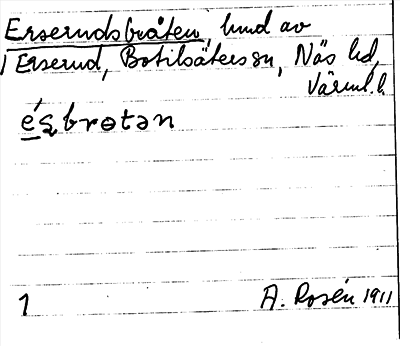 Erserudsbråten, lund av
Erserud, Botilsäters sn, Näs hd,
Värml. l.
éʂbrɵtən
1 A. Rosén 1911